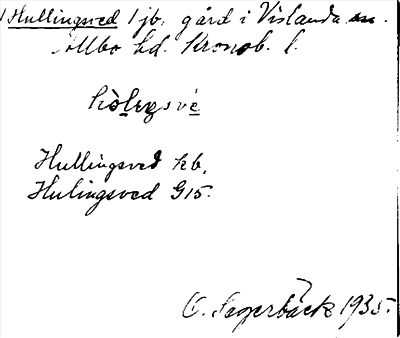 Hullingsved 1 jb, gård i Vislanda sn.
Allbo hd. Kronob. l.
Hullingsved kb,
Hulingsved G15.
C. Segerbäck 1935.